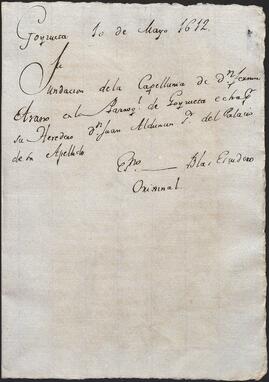 Goyzueta 10 de Mayo 1612
Fundacion de la Capellania de Dn
en la Parroql. de Goyzueta echa pr.
su Heredero Dn Juan del Palacio
de su Apellido
Essno. Blas Escudero
Original